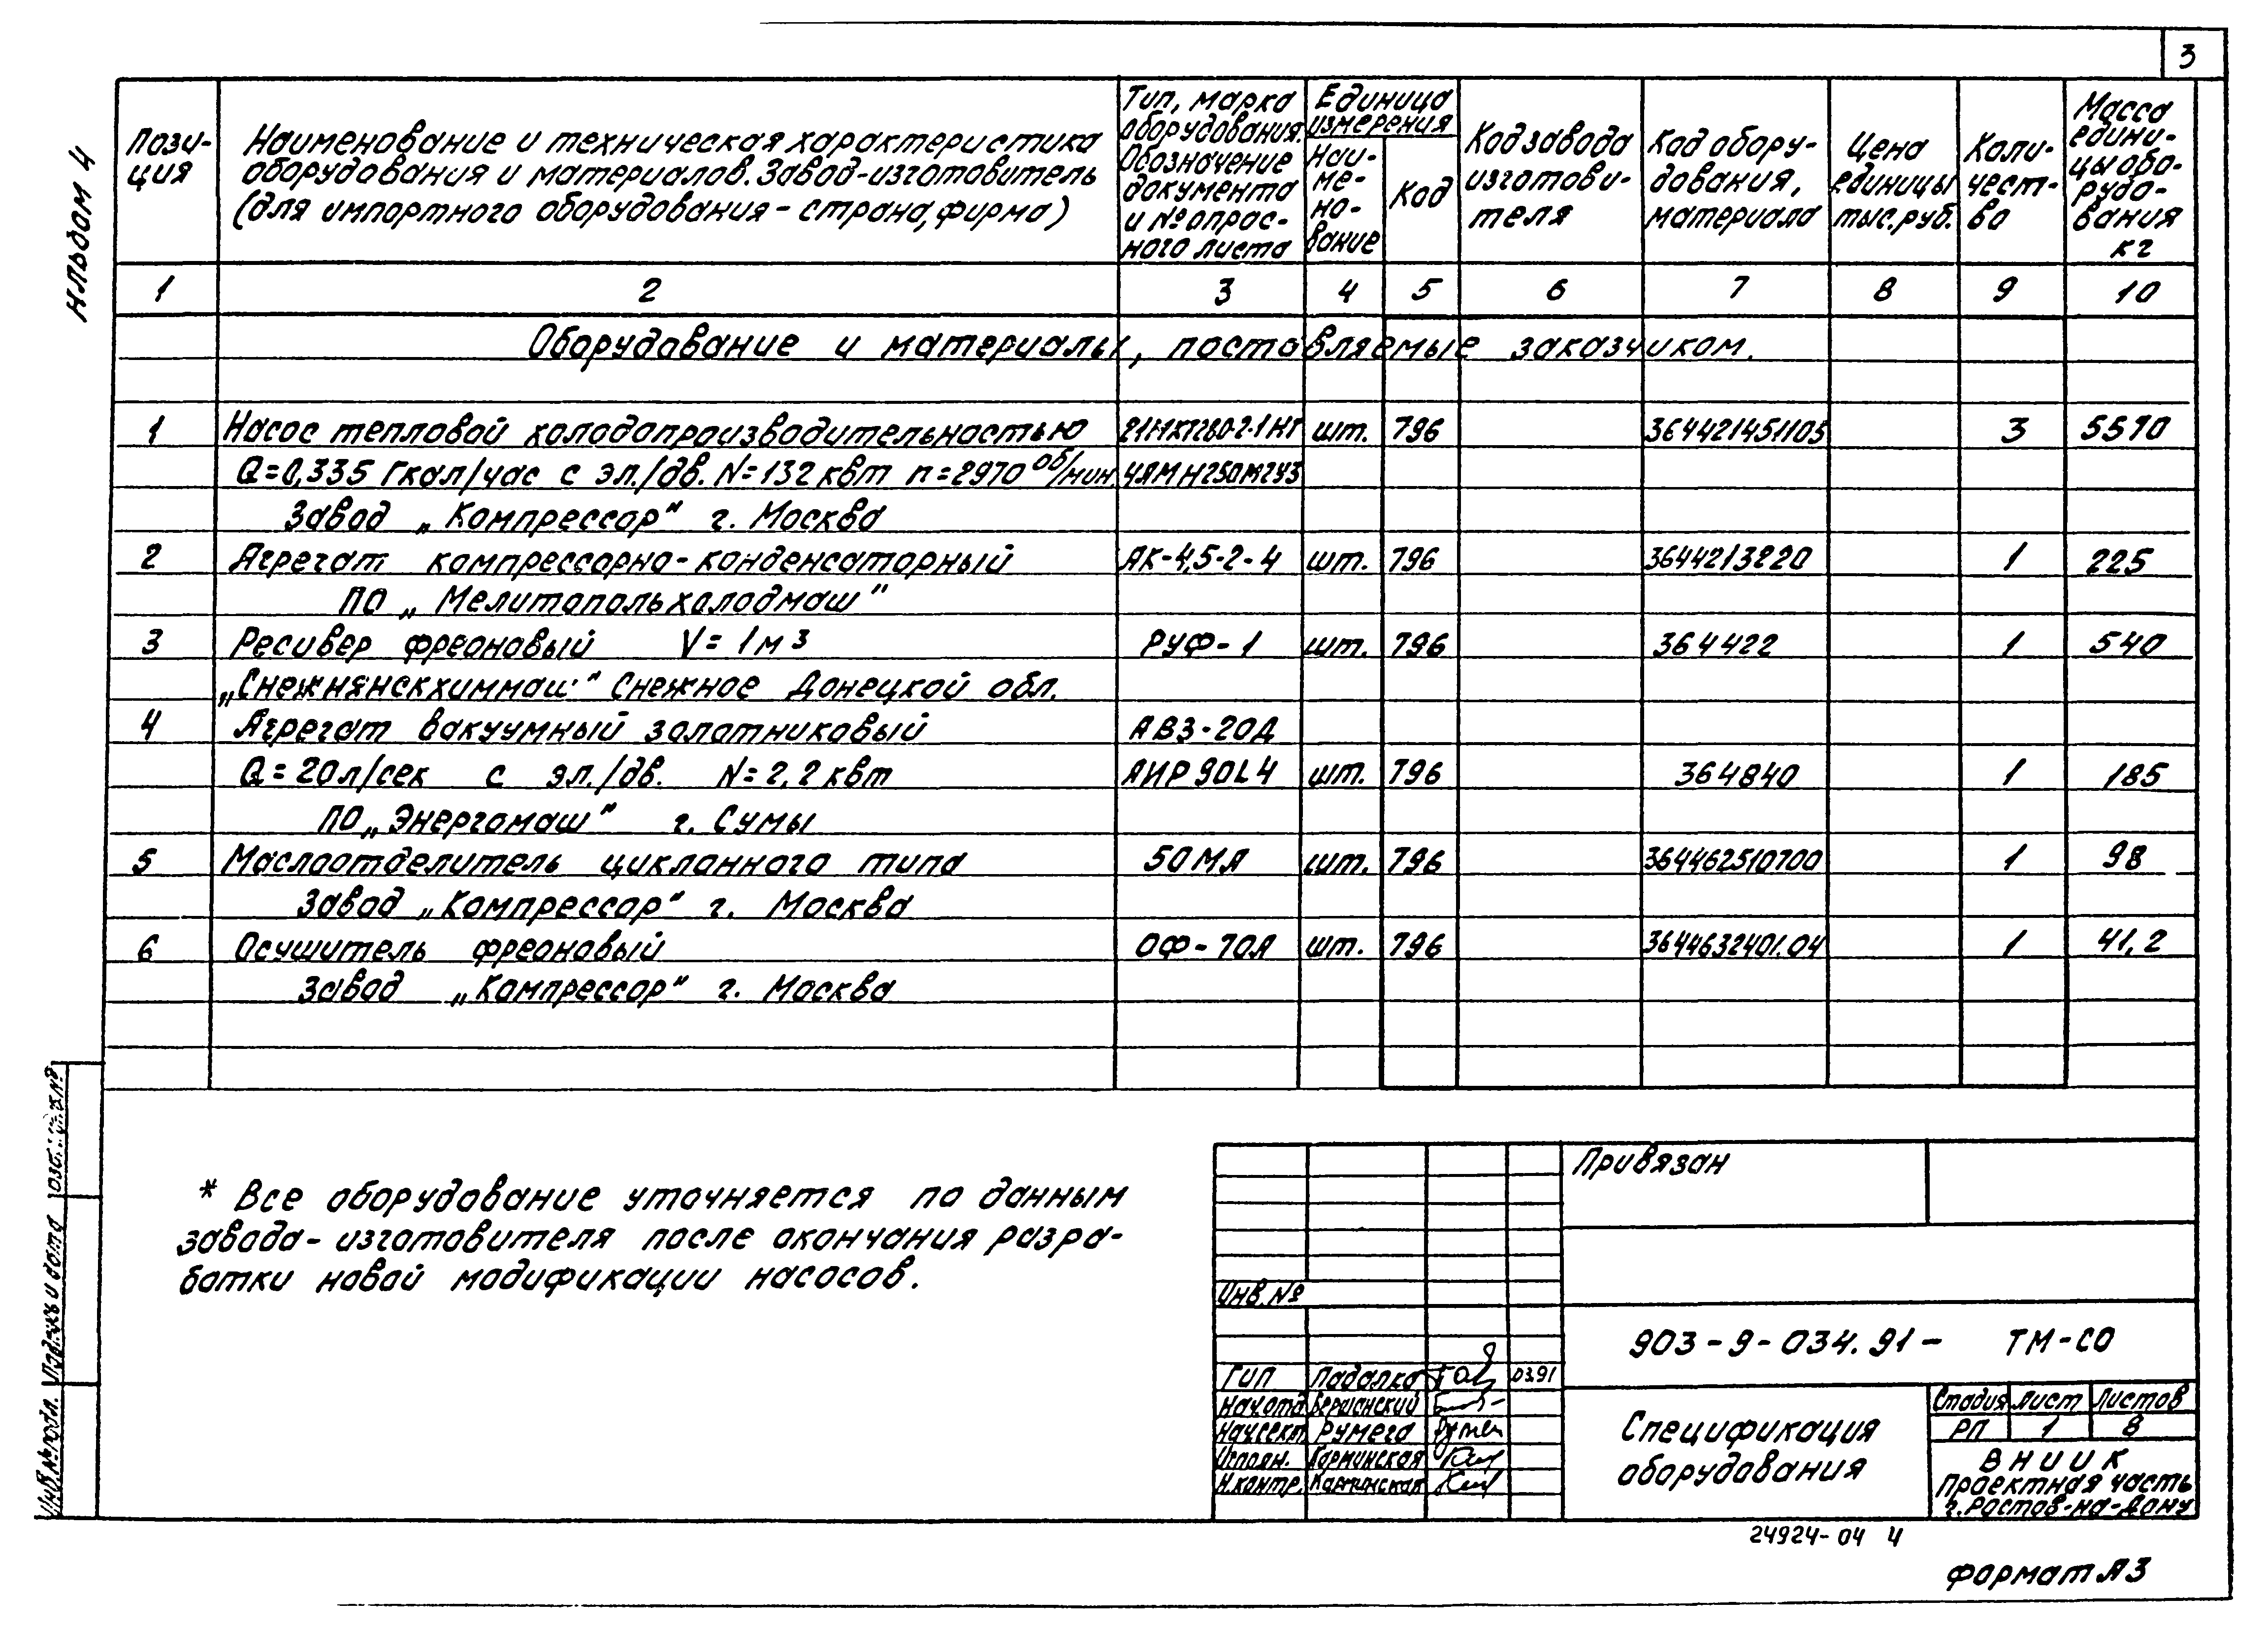 3
Альбом 4
Пози-
ция
Наименование и техническая характеристика
оборудования и материалов. Завод-изготовитель
(для импортного оборудования - страна, фирма)
Тип, марка
оборудования.
Обозначение
документа
и № опрос-
ного листа
Единица
измерения
Наи-
ме-
но-
вание
Код
Код завода
изготови-
теля
Код обору-
дования,
материала
Цена
единицы
тыс.руб.
Коли-
чест-
во
Масса
едини-
цы обо-
рудо-
вания
кг
1 2 3 4 5 6 7 8 9 10
Оборудование и материалы, поставляемые заказчиком.
1 Насос тепловой холодопроизводительностью 21МКТ280-2-1НТ шт. 796 364421451105 3 5570
Q=0,335 Гкал/час с эл./дв. N=132 квт n=2970 об/мин. 4АМН250М2У3
Завод „Компрессор" г. Москва
2 Агрегат компрессорно-конденсаторный АК-4,5-2-4 шт. 796 3644213220 1 225
ПО „Мелитопольхолодмаш"
3 Ресивер фреоновый V=1м³ РУФ-1 шт. 796 364422 1 540
„Снежнянскхиммаш" Снежное Донецкой обл.
4 Агрегат вакуумный золотниковый АВЗ-20Д
Q=20л/сек с эл./дв. N=2,2 квт АИР90L4 шт. 796 364840 1 185
ПО „Энергомаш" г. Сумы
5 Маслоотделитель циклонного типа 50МА шт. 796 364462510700 1 98
Завод „Компрессор" г. Москва
6 Осушитель фреоновый ОФ-70А шт. 796 3644632401.04 1 41,2
Завод „Компрессор" г. Москва
* Все оборудование уточняется по данным
завода-изготовителя после окончания разра-
ботки новой модификации насосов.
Привязан
Инв.№
903-9-034.91- ТМ-СО
ГИП Падалко 03.91
Нач.отд. Бершанский
Нач.сект. Румега
Исполн. Карминская
Н.контр. Карминская
Спецификация
оборудования
Стадия Лист Листов
РП 1 8
ВНИИК
Проектная часть
г.Ростов-на-Дону
Инв.№подл. Подпись и дата
24924-04 4
Формат А3